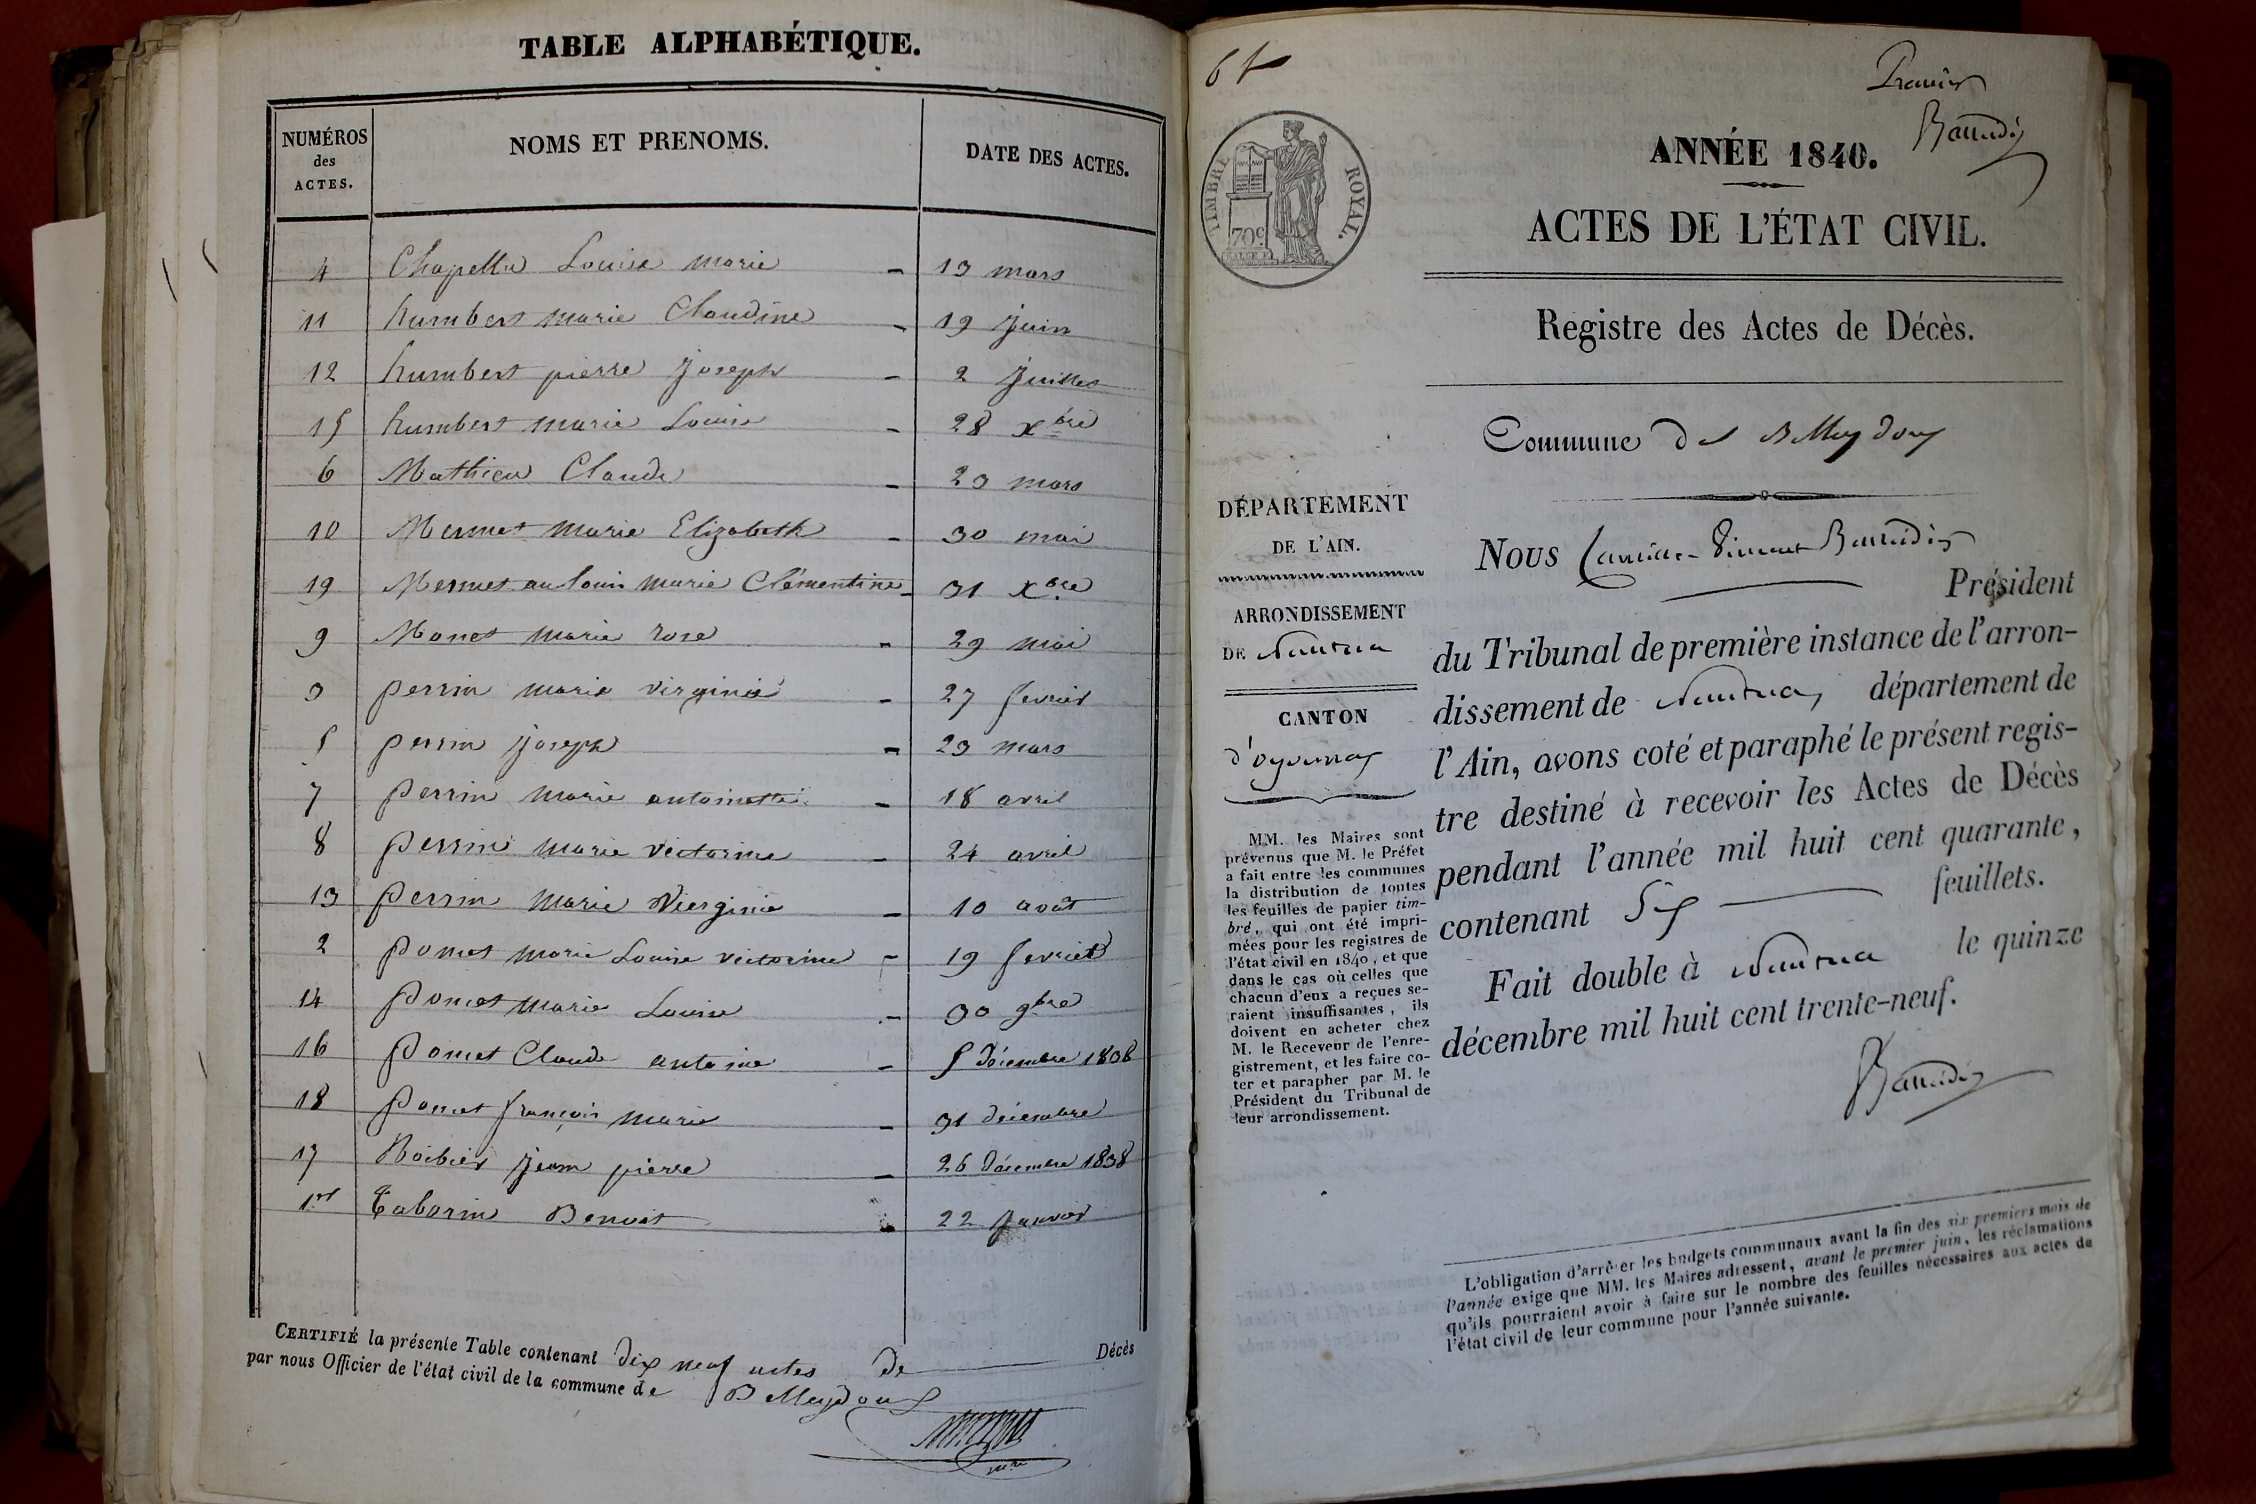 TABLE ALPHABÉTIQUE.
NUMÉROS des ACTES. NOMS ET PRENOMS. DATE DES ACTES.
4 Chapellu Louise marie - 13 mars
11 humbert marie Claudine - 19 juin
12 humbert pierre joseph - 2 juillet
15 humbert marie Louise - 28 Xbre
6 Mathieu Claude - 23 mars
10 Mermet marie Elizabeth - 30 mai
19 Mermet au louis marie Clémentine - 31 Xbre
9 Monet marie rose - 29 mai
3 perrin marie virginie - 27 fevrier
5 perrin joseph - 23 mars
7 perrin marie antoinette - 18 avril
8 perrin marie victorine - 24 avril
13 perrin marie Vierginie - 10 août
2 poncet marie Louise victorine - 19 fevrier
14 poncet marie Louise - 30 9bre
16 poncet Claude antoine - 5 décembre 1838
18 poncet françois marie - 31 décembre
17 Roibier jean pierre - 26 décembre 1838
1er Taborin Benoit 22 janvier
CERTIFIÉ la présente Table contenant dix neuf actes de Décès
par nous Officier de l'état civil de la commune de Belleydoux
6 f
TIMBRE ROYAL.
70c
Premier
Baudin
ANNÉE 1840.
ACTES DE L'ÉTAT CIVIL.
Registre des Actes de Décès.
Commune de Belleydoux
DÉPARTEMENT
DE L'AIN.
ARRONDISSEMENT
DE Nantua
CANTON
d'oyonnax
MM. les Maires sont
prévenus que M. le Préfet
a fait entre les communes
la distribution de toutes
les feuilles de papier tim-
bré, qui ont été impri-
mées pour les registres de
l'état civil en 1840, et que
dans le cas où celles que
chacun d'eux a reçues se-
raient insuffisantes, ils
doivent en acheter chez
M. le Receveur de l'enre-
gistrement, et les faire co-
ter et parapher par M. le
Président du Tribunal de
leur arrondissement.
Nous
Président
du Tribunal de première instance de l'arron-
dissement de Nantua, département de
l'Ain, avons coté et paraphé le présent regis-
tre destiné à recevoir les Actes de Décès
pendant l'année mil huit cent quarante,
contenant Six feuillets.
Fait double à Nantua le quinze
décembre mil huit cent trente-neuf.
L'obligation d'arrêter les budgets communaux avant la fin des six premiers mois de
l'année exige que MM. les Maires adressent, avant le premier juin, les réclamations
qu'ils pourraient avoir à faire sur le nombre des feuilles nécessaires aux actes de
l'état civil de leur commune pour l'année suivante.